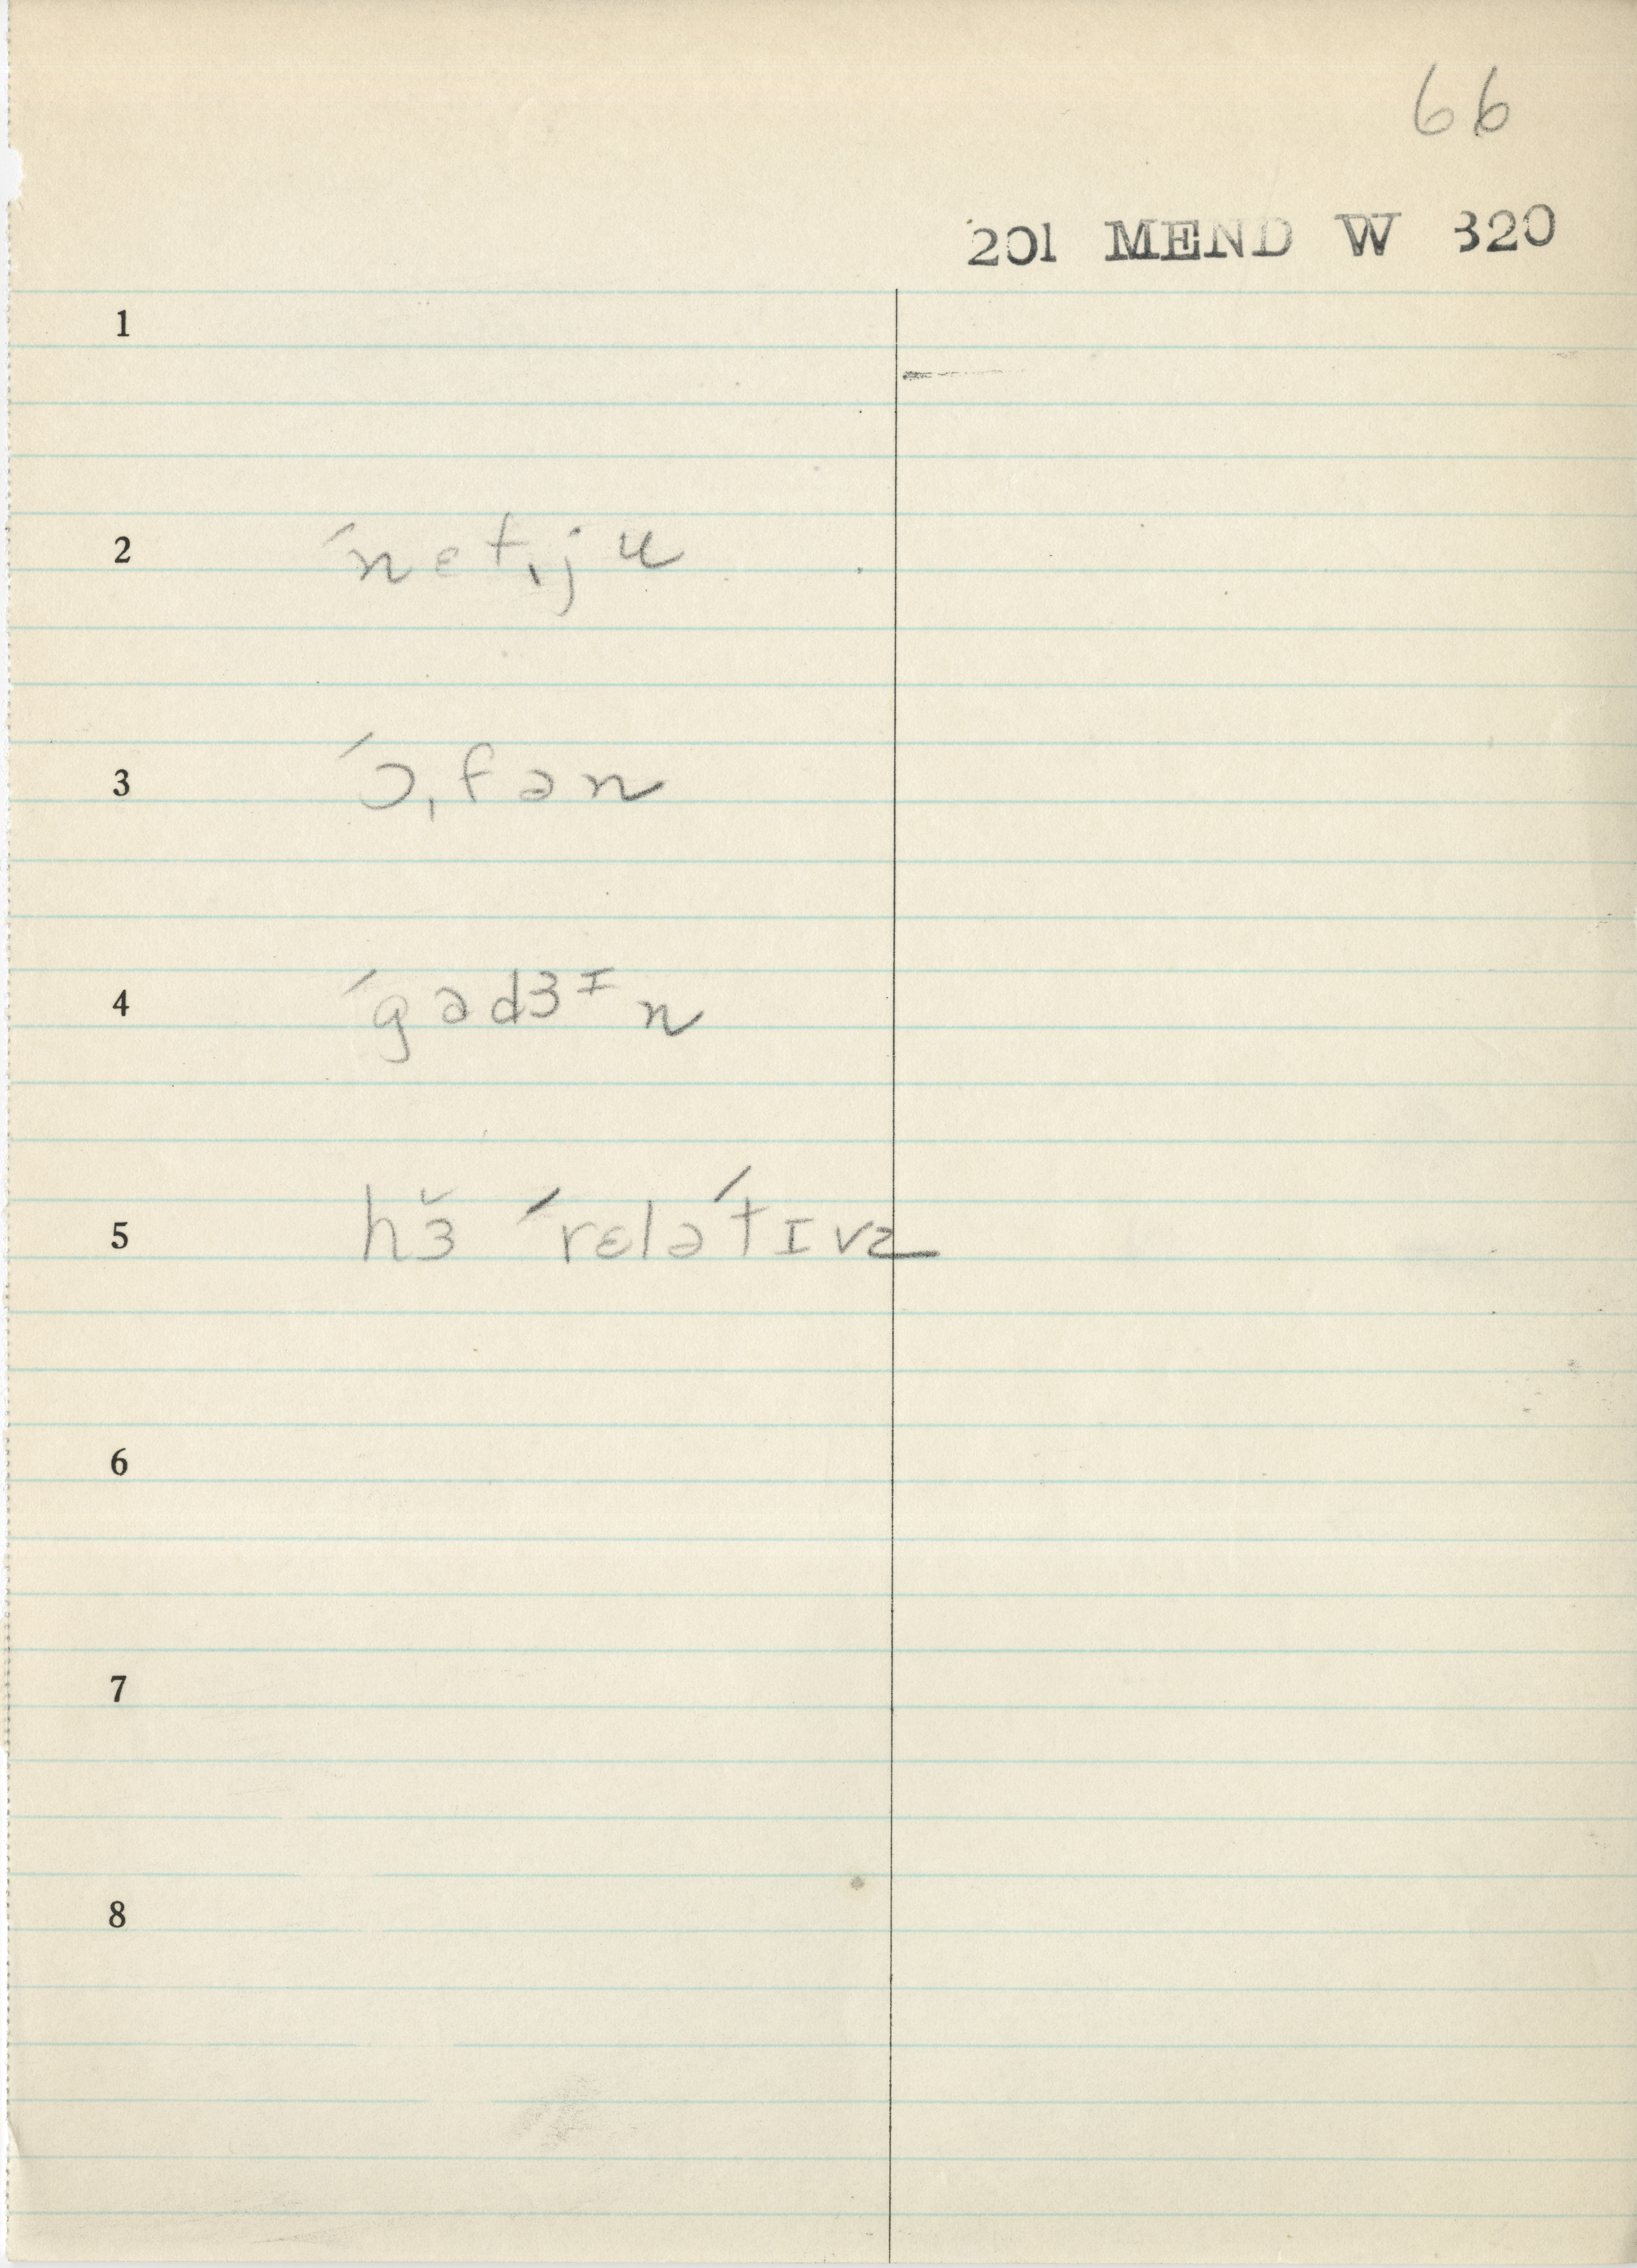 66
201 MEND W 320
1
2 ´nɛtˌju
3 ´ɔˌfən
4 ´gadʒɪn
5 hɜ̆ ´rɛlə´tɪvz
6
7
8